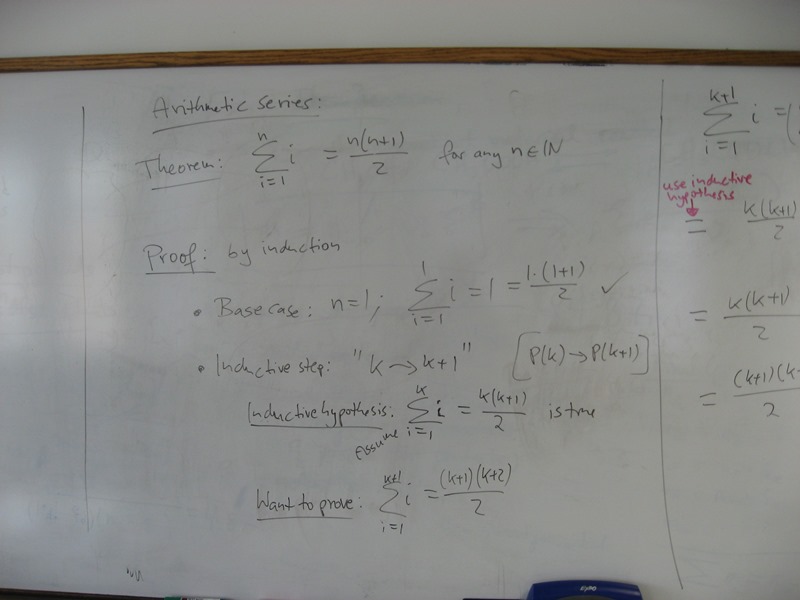 Arithmetic series:
Theorem: n ∑ i=1 i = n(n+1)/2 for any n ∈ ℕ
Proof: by induction
• Base case: n=1; 1 ∑ i=1 i = 1 = 1·(1+1)/2 ✓
• Inductive step: "k → k+1" [P(k) → P(k+1)]
Inductive hypothesis: k ∑ i=1 i = k(k+1)/2 is true
Assume
Want to prove: k+1 ∑ i=1 i = (k+1)(k+2)/2
k+1 ∑ i=1 i = (
use inductive
hypothesis
= k(k+1)/2
= k(k+1)/2
= (k+1)(k+/2
EXPO